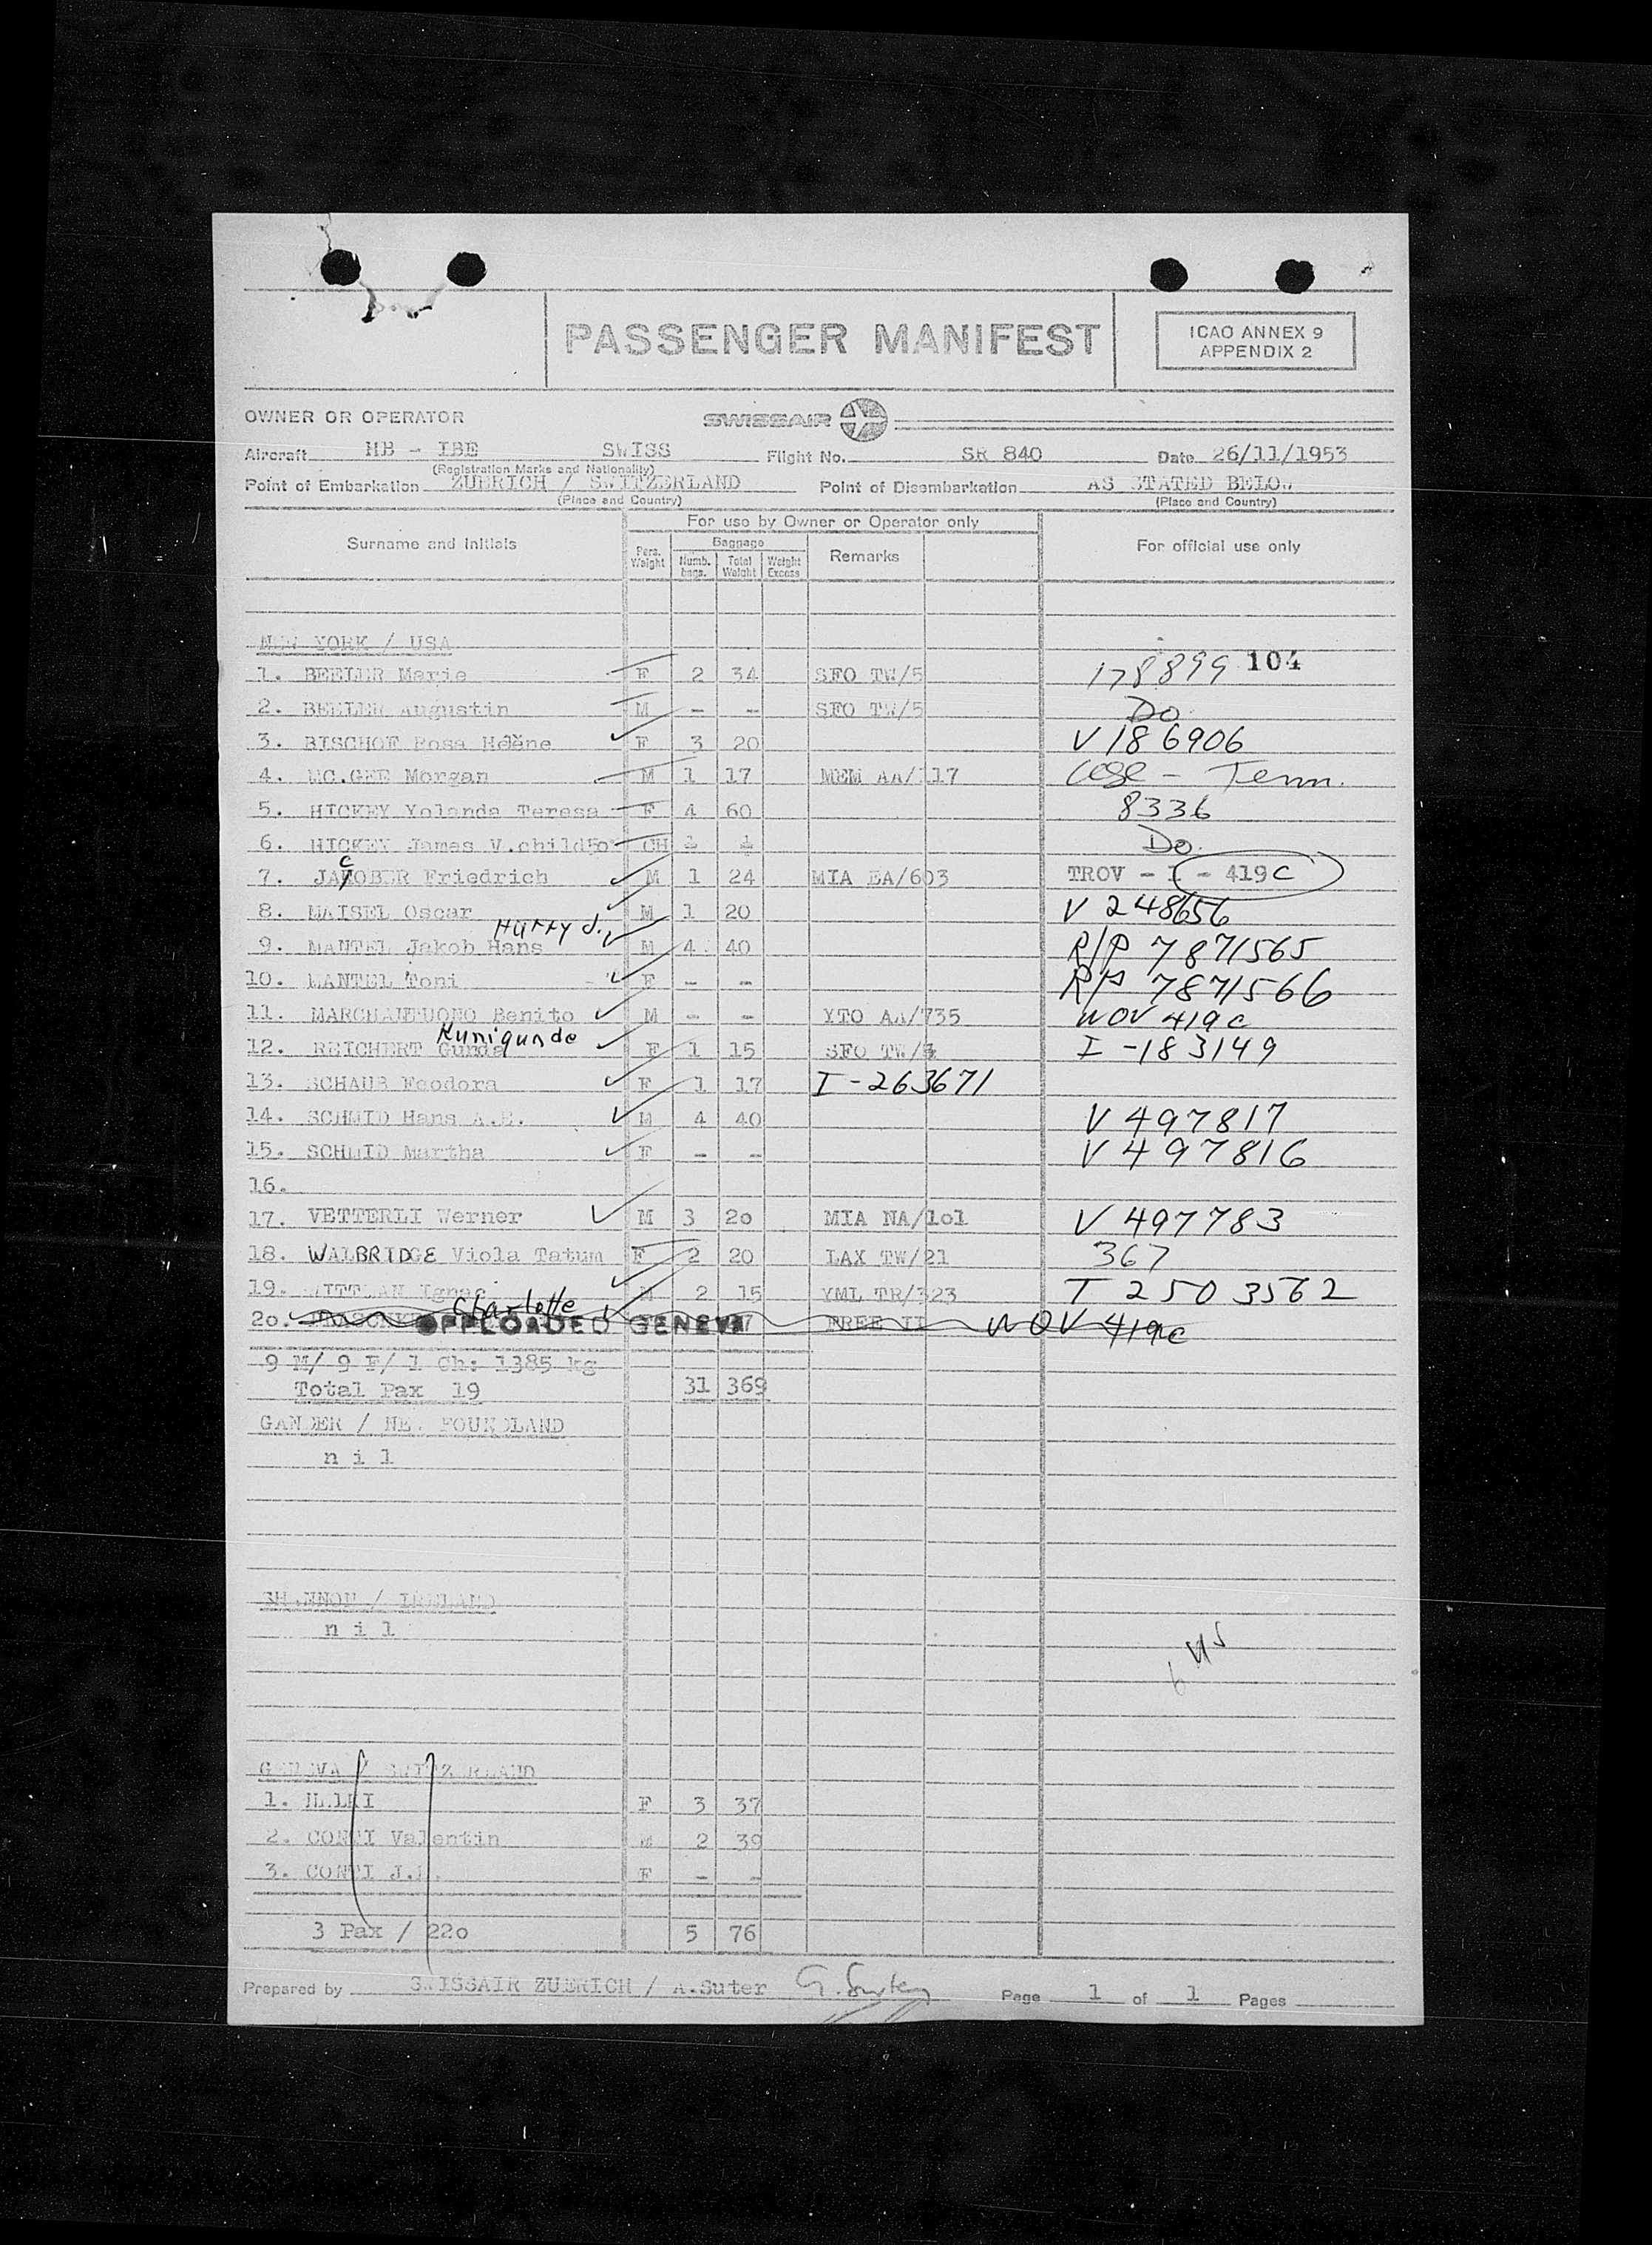 PASSENGER MANIFEST
ICAO ANNEX 9
APPENDIX 2
OWNER OR OPERATOR SWISSAIR
Aircraft HB - IBE SWISS Flight No. SR 840 Date 26/11/1953
(Registration Marks and Nationality)
Point of Embarkation ZUERICH / SWITZERLAND Point of Disembarkation AS STATED BELOW
(Place and Country) (Place and Country)
For use by Owner or Operator only
Surname and initials Pers. Weight Baggage Numb. bags. Total Weight Weight Excess Remarks For official use only
NEW YORK / USA
104
1. BEELER Marie F 2 34 SFO TW/5 178899
2. BEELER Augustin M - - SFO TW/5 Do
3. BISCHOF Rosa Hélène F 3 20 V 186906
4. MC.GEE Morgan M 1 17 MEM AA/117 Tenn.
5. HICKEY Yolanda Teresa F 4 60 8336
6. HICKEY James V.child CH Do.
c
7. JAKOBER Friedrich M 1 24 MIA EA/603 TROV - I - 419C
8. MAISEL Oscar M 1 20 V 248656
Harry J.
9. MANTEL Jakob Hans M 4 40 R/P 7871565
10. MANTEL Toni F - - R/P 7871566
11. Benito M - - YTO AA/735 WOV 419c
Kunigunde
12. REICHERT Gunda F 1 15 SFO TW/ I-183149
13. SCHAUB Feodora F 1 17 I-263671
14. SCHMID Hans A.E. M 4 40 V 497817
15. SCHMID Martha F - - V 497816
16.
17. VETTERLI Werner M 3 2o MIA NA/1o1 V 497783
18. WALBRIDGE Viola Tatum F 2 20 LAX TW/21 367
19. WITTMAN Ignac M 2 15 YML TR/323 T 2503562
Charlotte
2o. OFFLOADED GENEVA WOV 419c
9 M/ 9 F/ 1 Ch: 1385 kg
Total Pax 19 31 369
GANDER / NEWFOUNDLAND
n i l
SHANNON / IRELAND
n i l
GENEVA / SWITZERLAND
1. F 3 37
2. CONTI Valentin M 2 39
3. CONTI F - -
3 Pax / 22o 5 76
Prepared by SWISSAIR ZUERICH / A.Suter Page 1 of 1 Pages